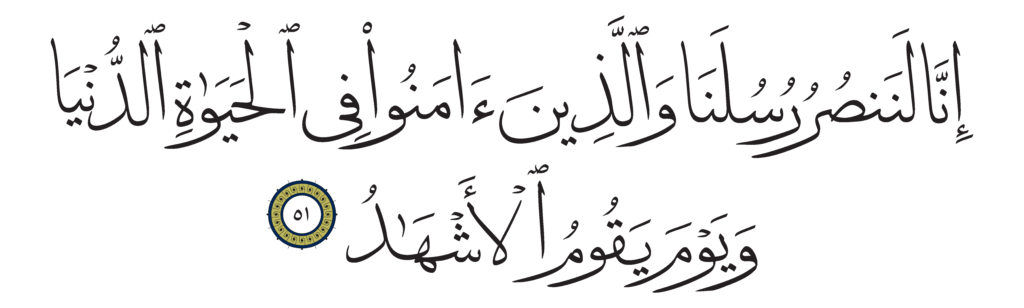 إِنَّا لَنَنصُرُ رُسُلَنَا وَٱلَّذِينَ ءَامَنُوا۟ فِى ٱلْحَيَوٰةِ ٱلدُّنْيَا
وَيَوْمَ يَقُومُ ٱلْأَشْهَـٰدُ ٥١